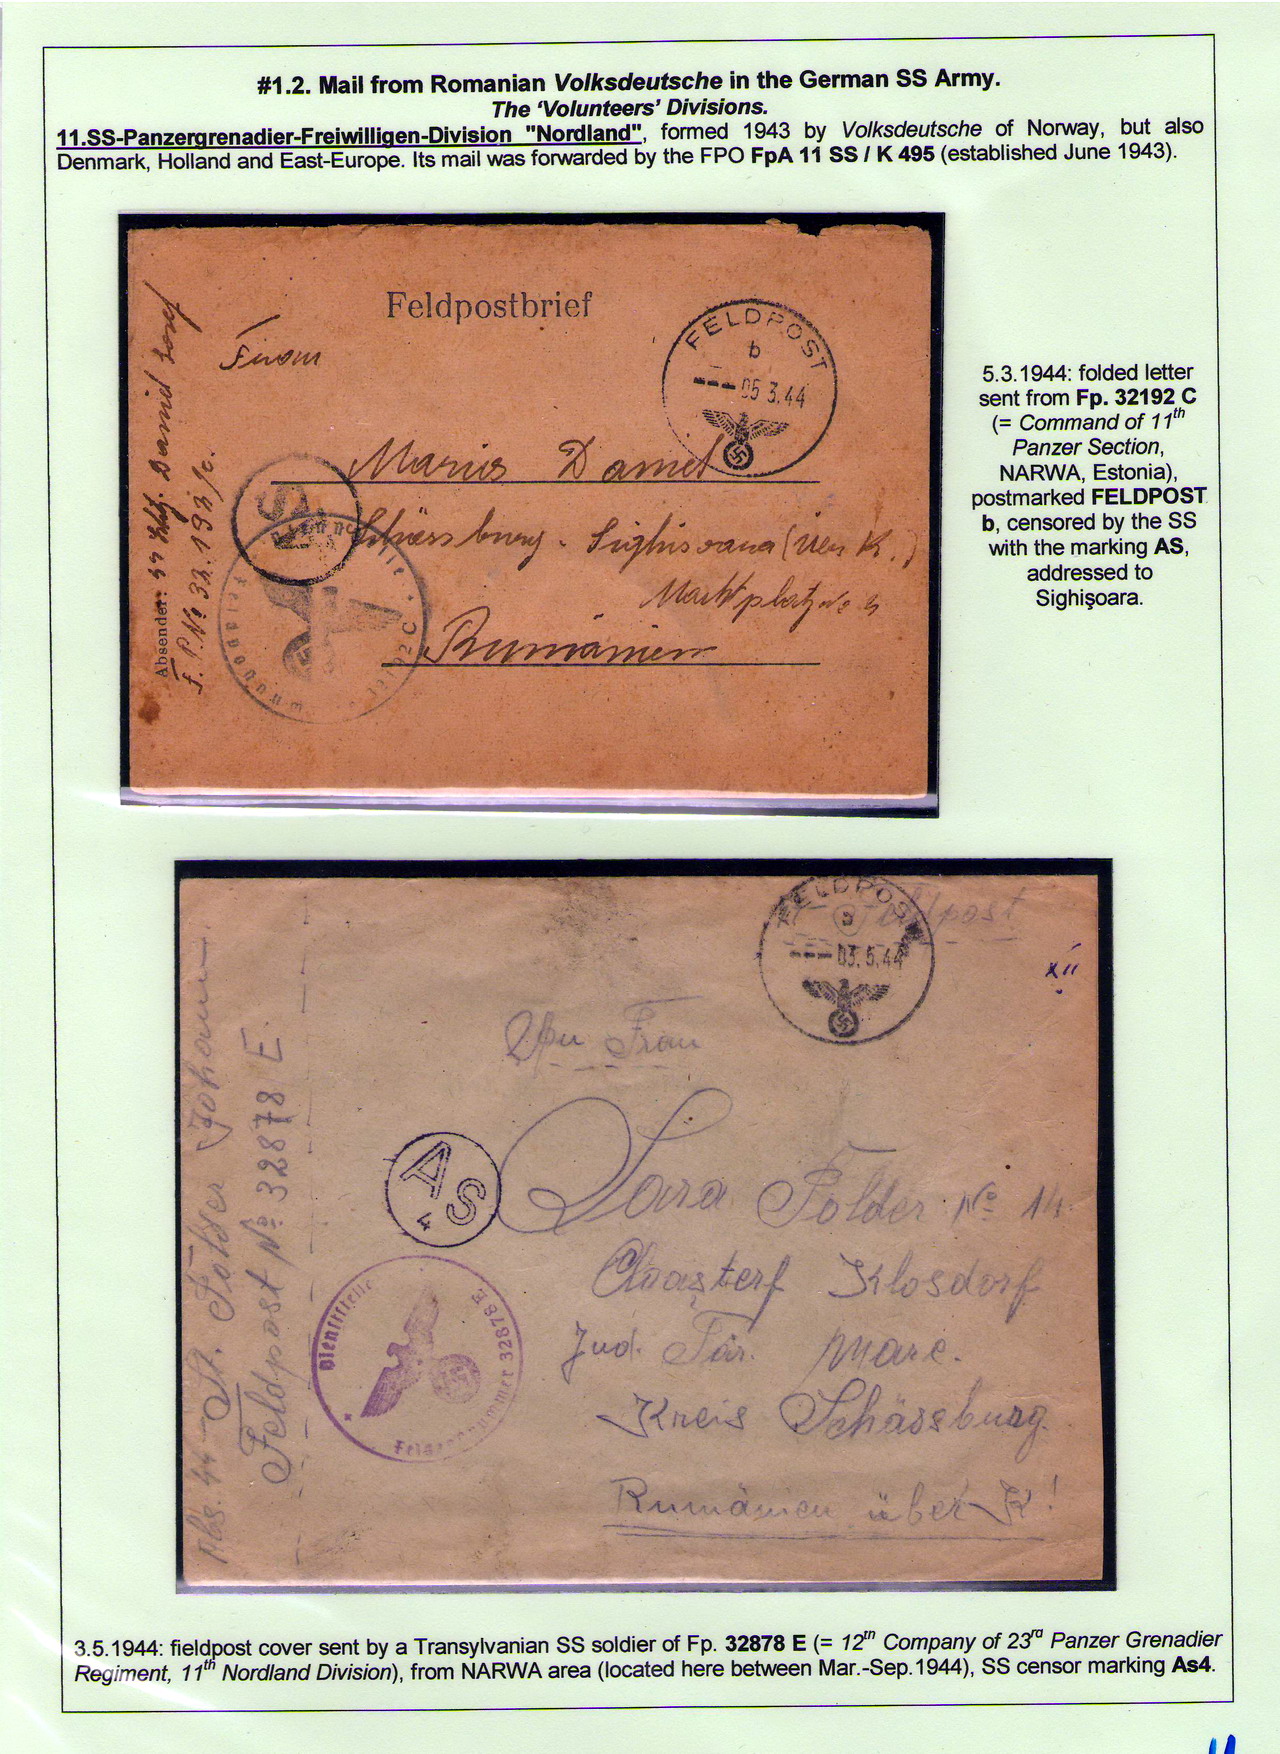 #1.2. Mail from Romanian Volksdeutsche in the German SS Army.
The 'Volunteers' Divisions.
11.SS-Panzergrenadier-Freiwilligen-Division "Nordland", formed 1943 by Volksdeutsche of Norway, but also
Denmark, Holland and East-Europe. Its mail was forwarded by the FPO FpA 11 SS / K 495 (established June 1943).
Feldpostbrief
FELDPOST
b
05 3.44
Marius Daniel
Schässburg - Sighisoara (über K.)
Marktplatz No
Rumänien
Absender: Daniel Josef
F. P. No 32.192/c.
5.3.1944: folded letter
sent from Fp. 32192 C
(= Command of 11th
Panzer Section,
NARWA, Estonia),
postmarked FELDPOST
b, censored by the SS
with the marking AS,
addressed to
Sighişoara.
FELDPOST
a
03.5.44
Feldpost
XII
An Frau
Sara Folder No 14
Cloasterf Klosdorf
Jud. Târ. Mare.
Kreis Schässburg.
Rumänien über K!
AS
4
Dienststelle
Feldpostnummer 32878 E
Abs. St. Folder Johann
Feldpost No 32878 E.
3.5.1944: fieldpost cover sent by a Transylvanian SS soldier of Fp. 32878 E (= 12th Company of 23rd Panzer Grenadier
Regiment, 11th Nordland Division), from NARWA area (located here between Mar.-Sep.1944), SS censor marking As4.